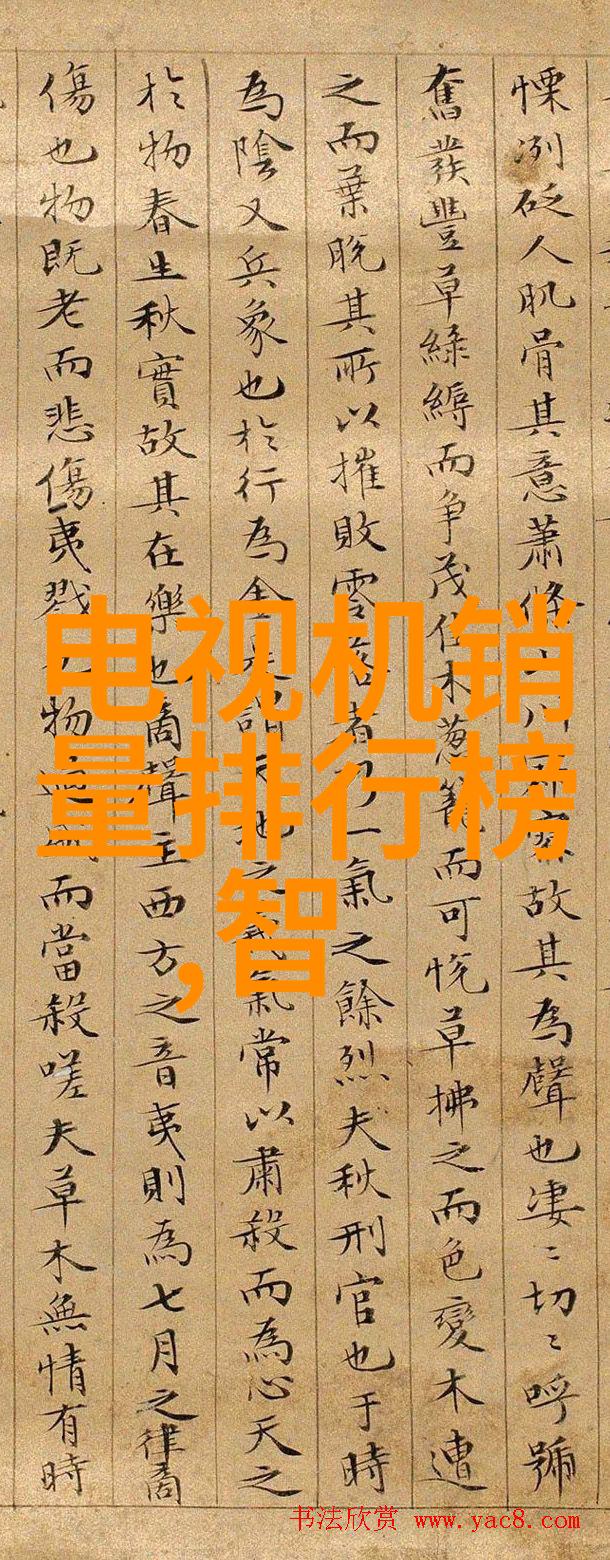 慄冽砭人肌骨其意蕭條川故其為聲也淒〻切〻呼號
奮發豐草綠縟而争茂佳木蔥籠而可悅草拂之而色變木遭
之而葉脫其所以摧敗零落者乃一氣之餘烈夫秋刑官也于時
為陰又兵象也於行為金是謂天地之義氣常以肅殺而為心天之
於物春生秋實故其在樂也商聲主西方之音夷則為七月之律商
傷也物既老而悲傷夷戮物而當殺嗟夫草木無情有時
电视机销
量排行榜
,智
书法欣赏 www.yac8.com